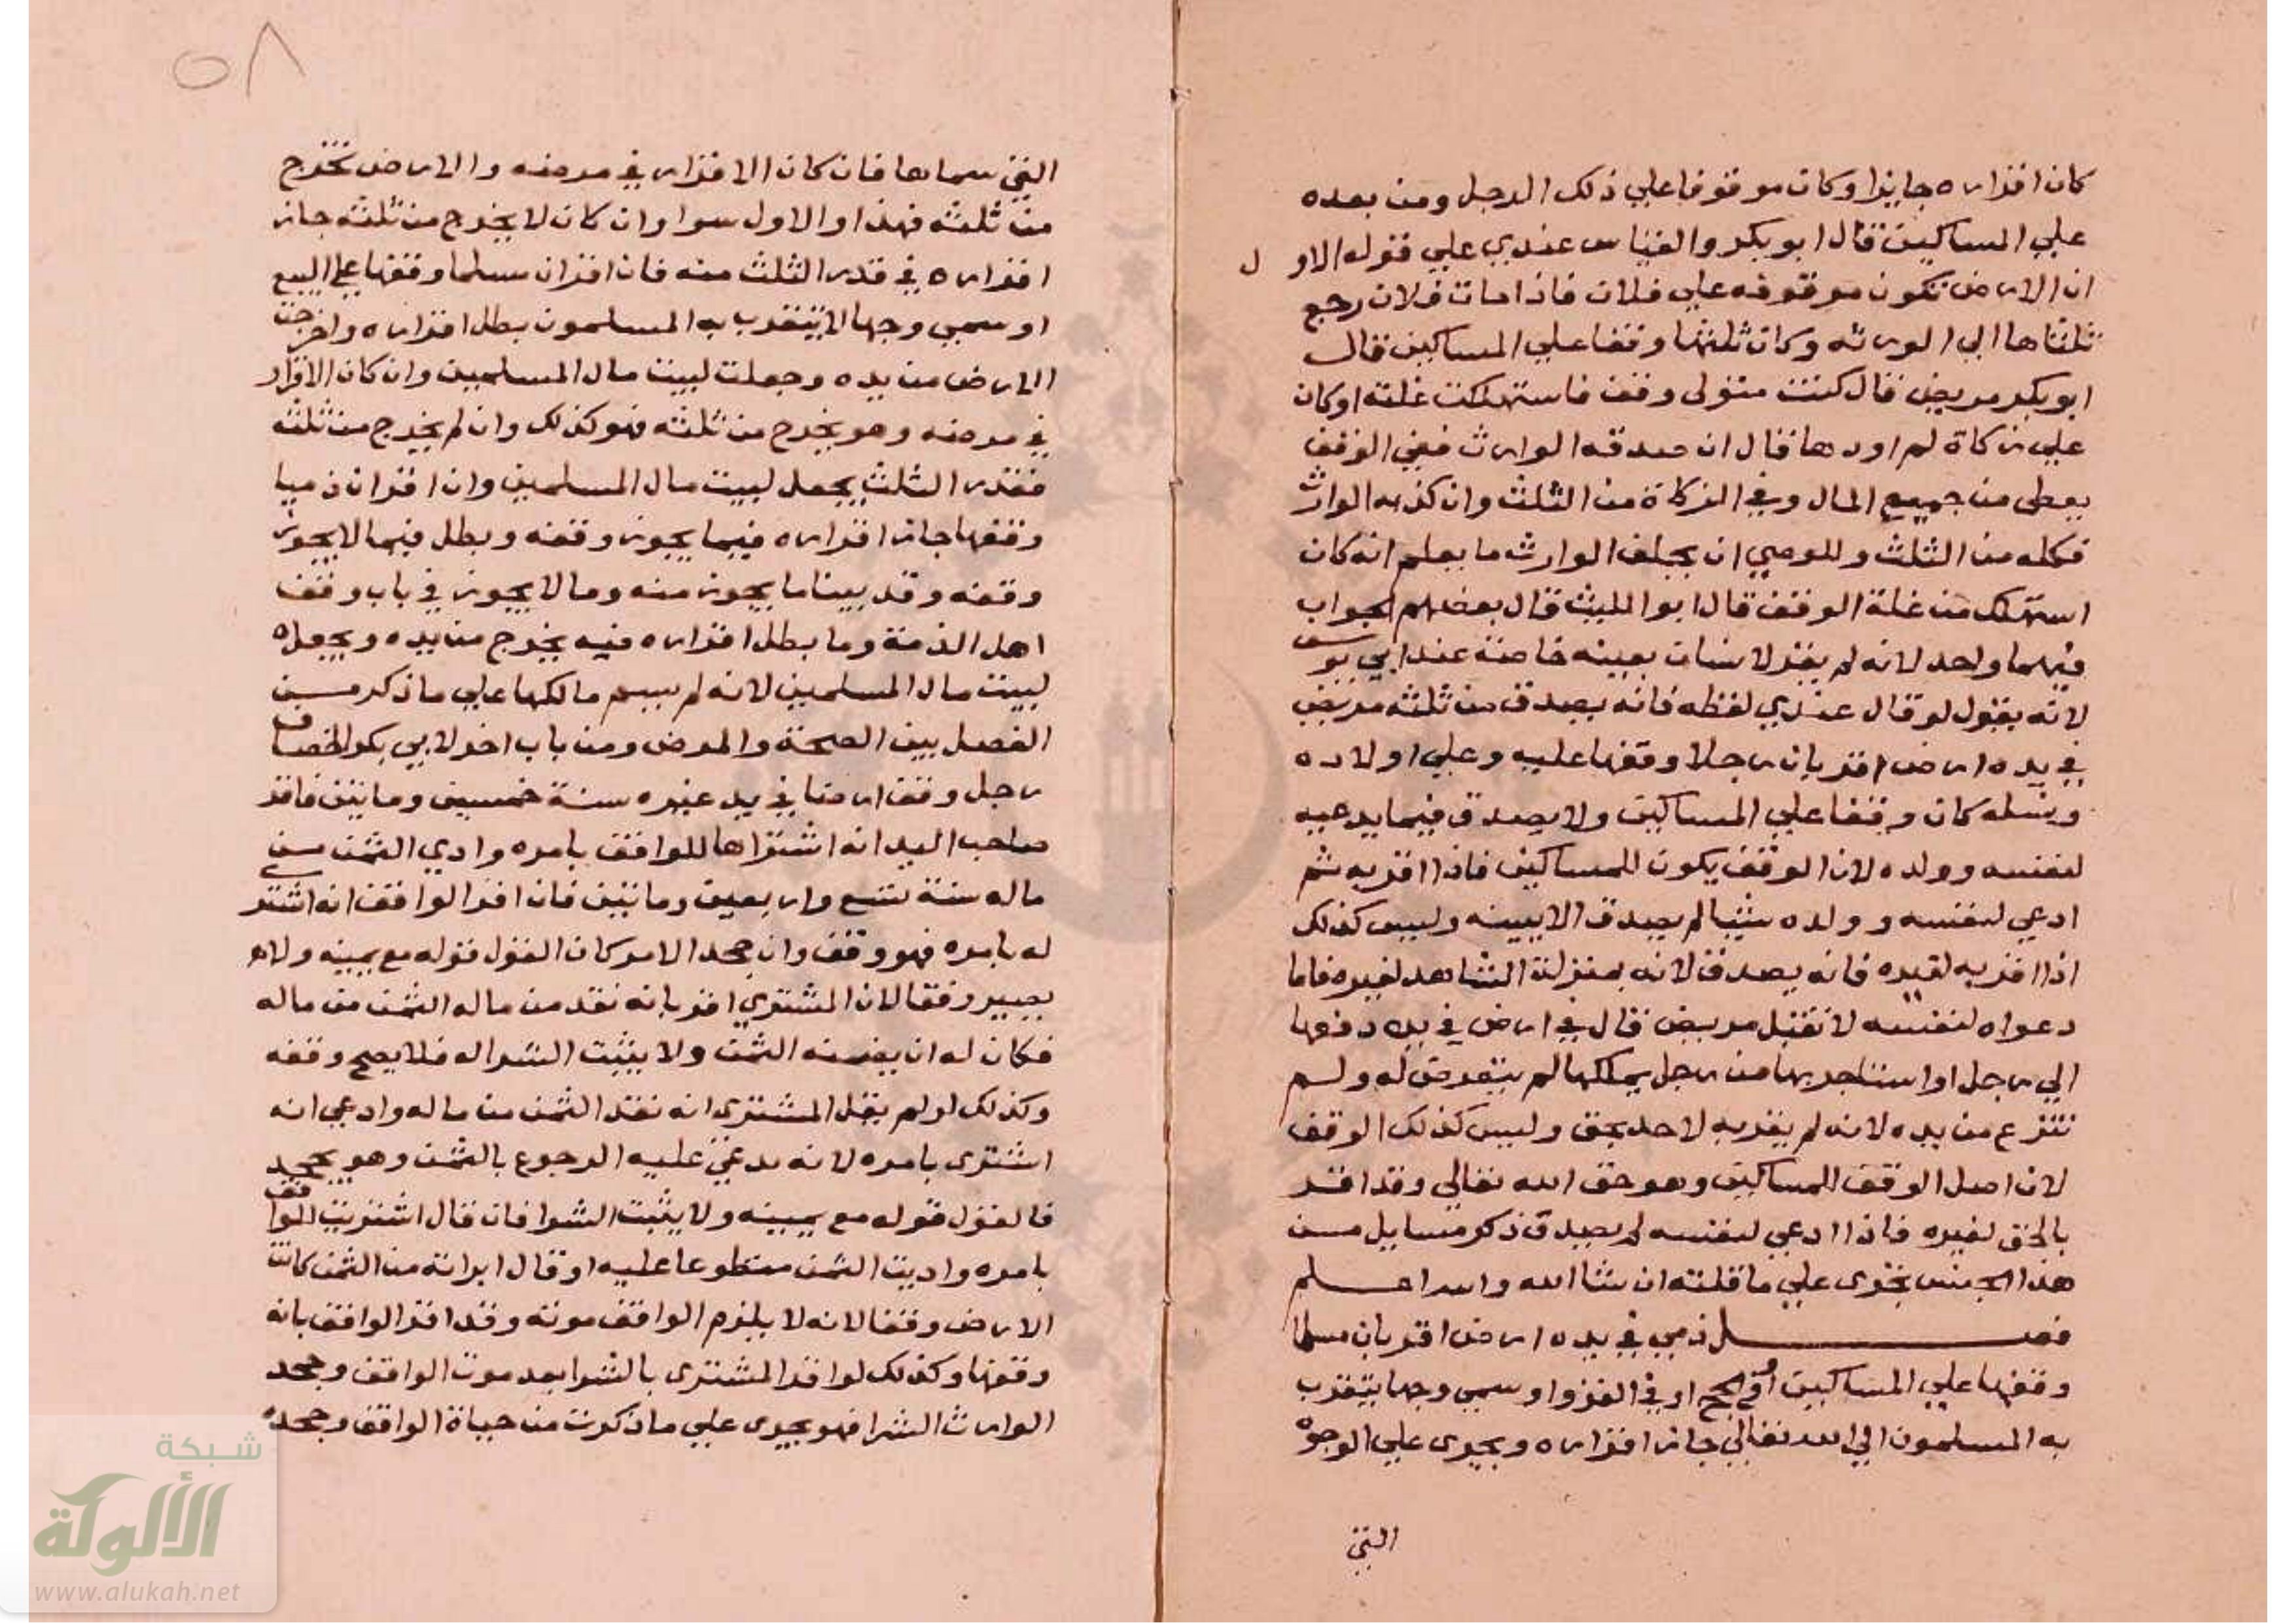 كان اقراره جايزا وكان موقوفا علي ذلك الرجل ومن بعده
علي المساكين قال ابو بكر والقياس عندي علي قوله الاول
ان الارض تكون موقوفه علي فلان فاذا مات فلان رجع
ثلثاها الي الورثه وكان ثلثها وقفا علي المساكين قال
ابو بكر مريض قال كنت متولي وقف فاستهلكت غلته او كان
علي زكاة لم اودها فقال ان صدقه الوارث ففي الوقف
يعطي من جميع المال وفي الزكاة من الثلث وان كذبه الوارث
فكله من الثلث وللوصي ان يحلف الوارث ما يعلم انه كان
استهلك من غلة الوقف قال ابو الليث قال بعضهم الجواب
فيهما واحد لانه لم يقر لانسان بعينه خاصة عند ابي يوسف
لانه يقول لو قال عندي لقطه فانه يصدق من ثلثه مريض
في يده ارض اقر بان رجلا وقفها عليه وعلي اولاده
ونسله كان وقفا علي المساكين ولا يصدق فيما يدعيه
لنفسه وولده لان الوقف يكون للمساكين فاذا اقر به ثم
ادعي لنفسه وولده شيئا لم يصدق الا ببينه وليس كذلك
اذا اقر به لغيره فانه يصدق لانه بمنزلة الشاهد لغيره فاما
دعواه لنفسه لا تقبل مريض قال في ارض في يده دفعها
الي رجل او استاجر بها من رجل يملكها لم يتعرض له ولم
تنتزع من يده لانه لم يقر به لاحد بحق وليس كذلك الوقف
لان اصل الوقف للمساكين وهو حق الله تعالي وقد اقر
بالحق لغيره فاذا ادعي لنفسه لم يصدق ذكر مسايل من
هذا الجنس تجري علي ما قلته ان شا الله والله اعلم
فصل ذمي في يده ارض اقر بان مسلما
وقفها علي المساكين او في الحج او في الغزو او سمي وجها يتقرب
به المسلمون الي الله تعالي جاز اقراره ويجري علي الوجوه
التي
٥٨
التي سماها فان كان الاقرار في مرضه والارض تخرج
من ثلثه فهذا والاول سوا وان كان لا يخرج من ثلثه جاز
اقراره في قدر الثلث منه فان اقر ان مسلما وقفها علي البيع
او سمي وجها لا يتقرب به المسلمون بطل اقراره واخرجت
الارض من يده وجعلت لبيت مال المسلمين وان كان الاقرار
في مرضه وهو يخرج من ثلثه فهو كذلك وان لم يخرج من ثلثه
فقدر الثلث يجعل لبيت مال المسلمين وان اقر ان ذميا
وقفها جاز اقراره فيما يجوز وقفه وبطل فيما لا يجوز
وقفه وقد بينا ما يجوز منه وما لا يجوز في باب وقف
اهل الذمة وما بطل اقراره فيه يخرج من يده ويجعله
لبيت مال المسلمين لانه لم يسم مالكها علي ما ذكر من
الفصل بين الصحة والمرض ومن باب اخر لابي بكر الخصاف
رجل وقف ارضا في يد غيره سنة خمسين وماتين فاقر
صاحب اليد انه اشتراها للواقف بامره وادي الثمن من
ماله سنة تسع واربعين وماتين فان اقر الواقف انه اشتر
له بامره فهو وقف وان جحد الامر كان القول قوله مع يمينه ولا
يصير وقفا لان المشتري اقر بانه نقد من ماله الثمن من ماله
فكان له ان يقبضه الثمن ولا يثبت الشرا له فلا يصح وقفه
وكذلك لو لم يقل المشتري انه نقد الثمن من ماله وادعي انه
اشتري بامره لانه يدعي عليه الرجوع بالثمن وهو يجحد
فالقول قوله مع يمينه ولا يثبت الشرا فان قال اشتريت للواقف
بامره واديت الثمن متطوعا عليه او قال ابراته من الثمن كانت
الارض وقفا لانه لا يلزم الواقف مونه وقد اقر الواقف بانه
وقفها وكذلك لو اقر المشتري بالشرا بعد موت الواقف وجحد
الوارث الشرا فهو يجري علي ما ذكرت من حياة الواقف وجحده
شبكة
الألوكة
www.alukah.net